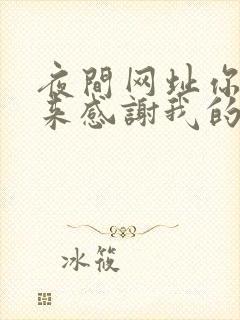 夜間网址你
来感謝我的
冰筱